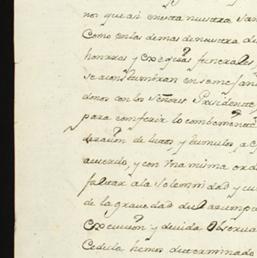 nos que âi en esta nuestra San
Como en las demas de nuestra d
honrras y exequias funerales,
se acostumbran en semejan
dimos con los Señores Presidente
para conferir lo combeniente
de razon de lutos, y tumulos a
acuerdo, y con una misma ord
faltar a la solemnidad y cu
de la gravedad del asumpt
execucion y devida observa
Cedula hemos determinado